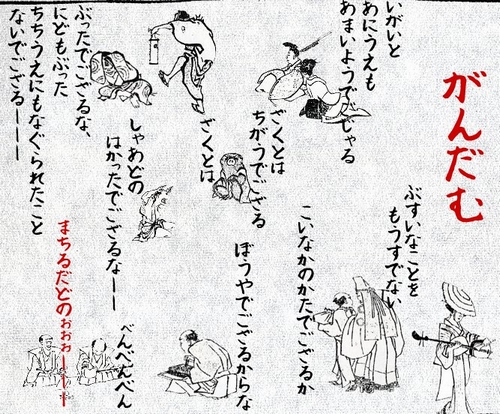 がんだむ
ぶすいなことを
もうすでない
こいなかのかたでござるか
いがいと
あにうえも
あまいようでおじゃる
ざくとは
ちがうでござる
ざくとは
ぼうやでござるからな
しゃあどの
はかったでござるなーー
べんべんべん
ぶったでござるな、
にどもぶった
ちちうえにもなぐられたこと
ないでござるーーー
まちるだどのぉぉぉーーー